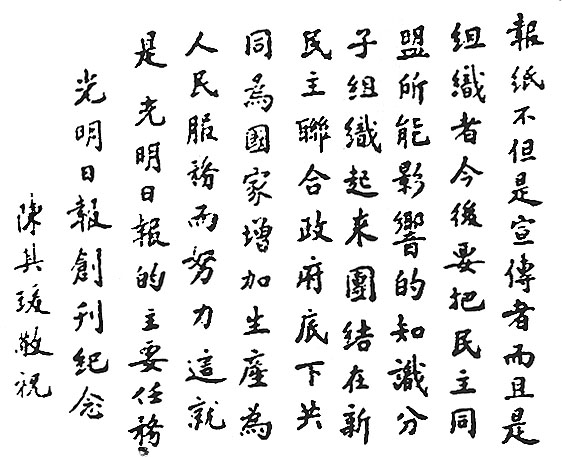 報紙不但是宣傳者而且是
組織者今後要把民主同
盟所能影響的知識分
子組織起來團結在新
民主聯合政府底下共
同為國家增加生產為
人民服務而努力這就
是光明日報的主要任務
光明日報創刊紀念
陳其瑗敬祝